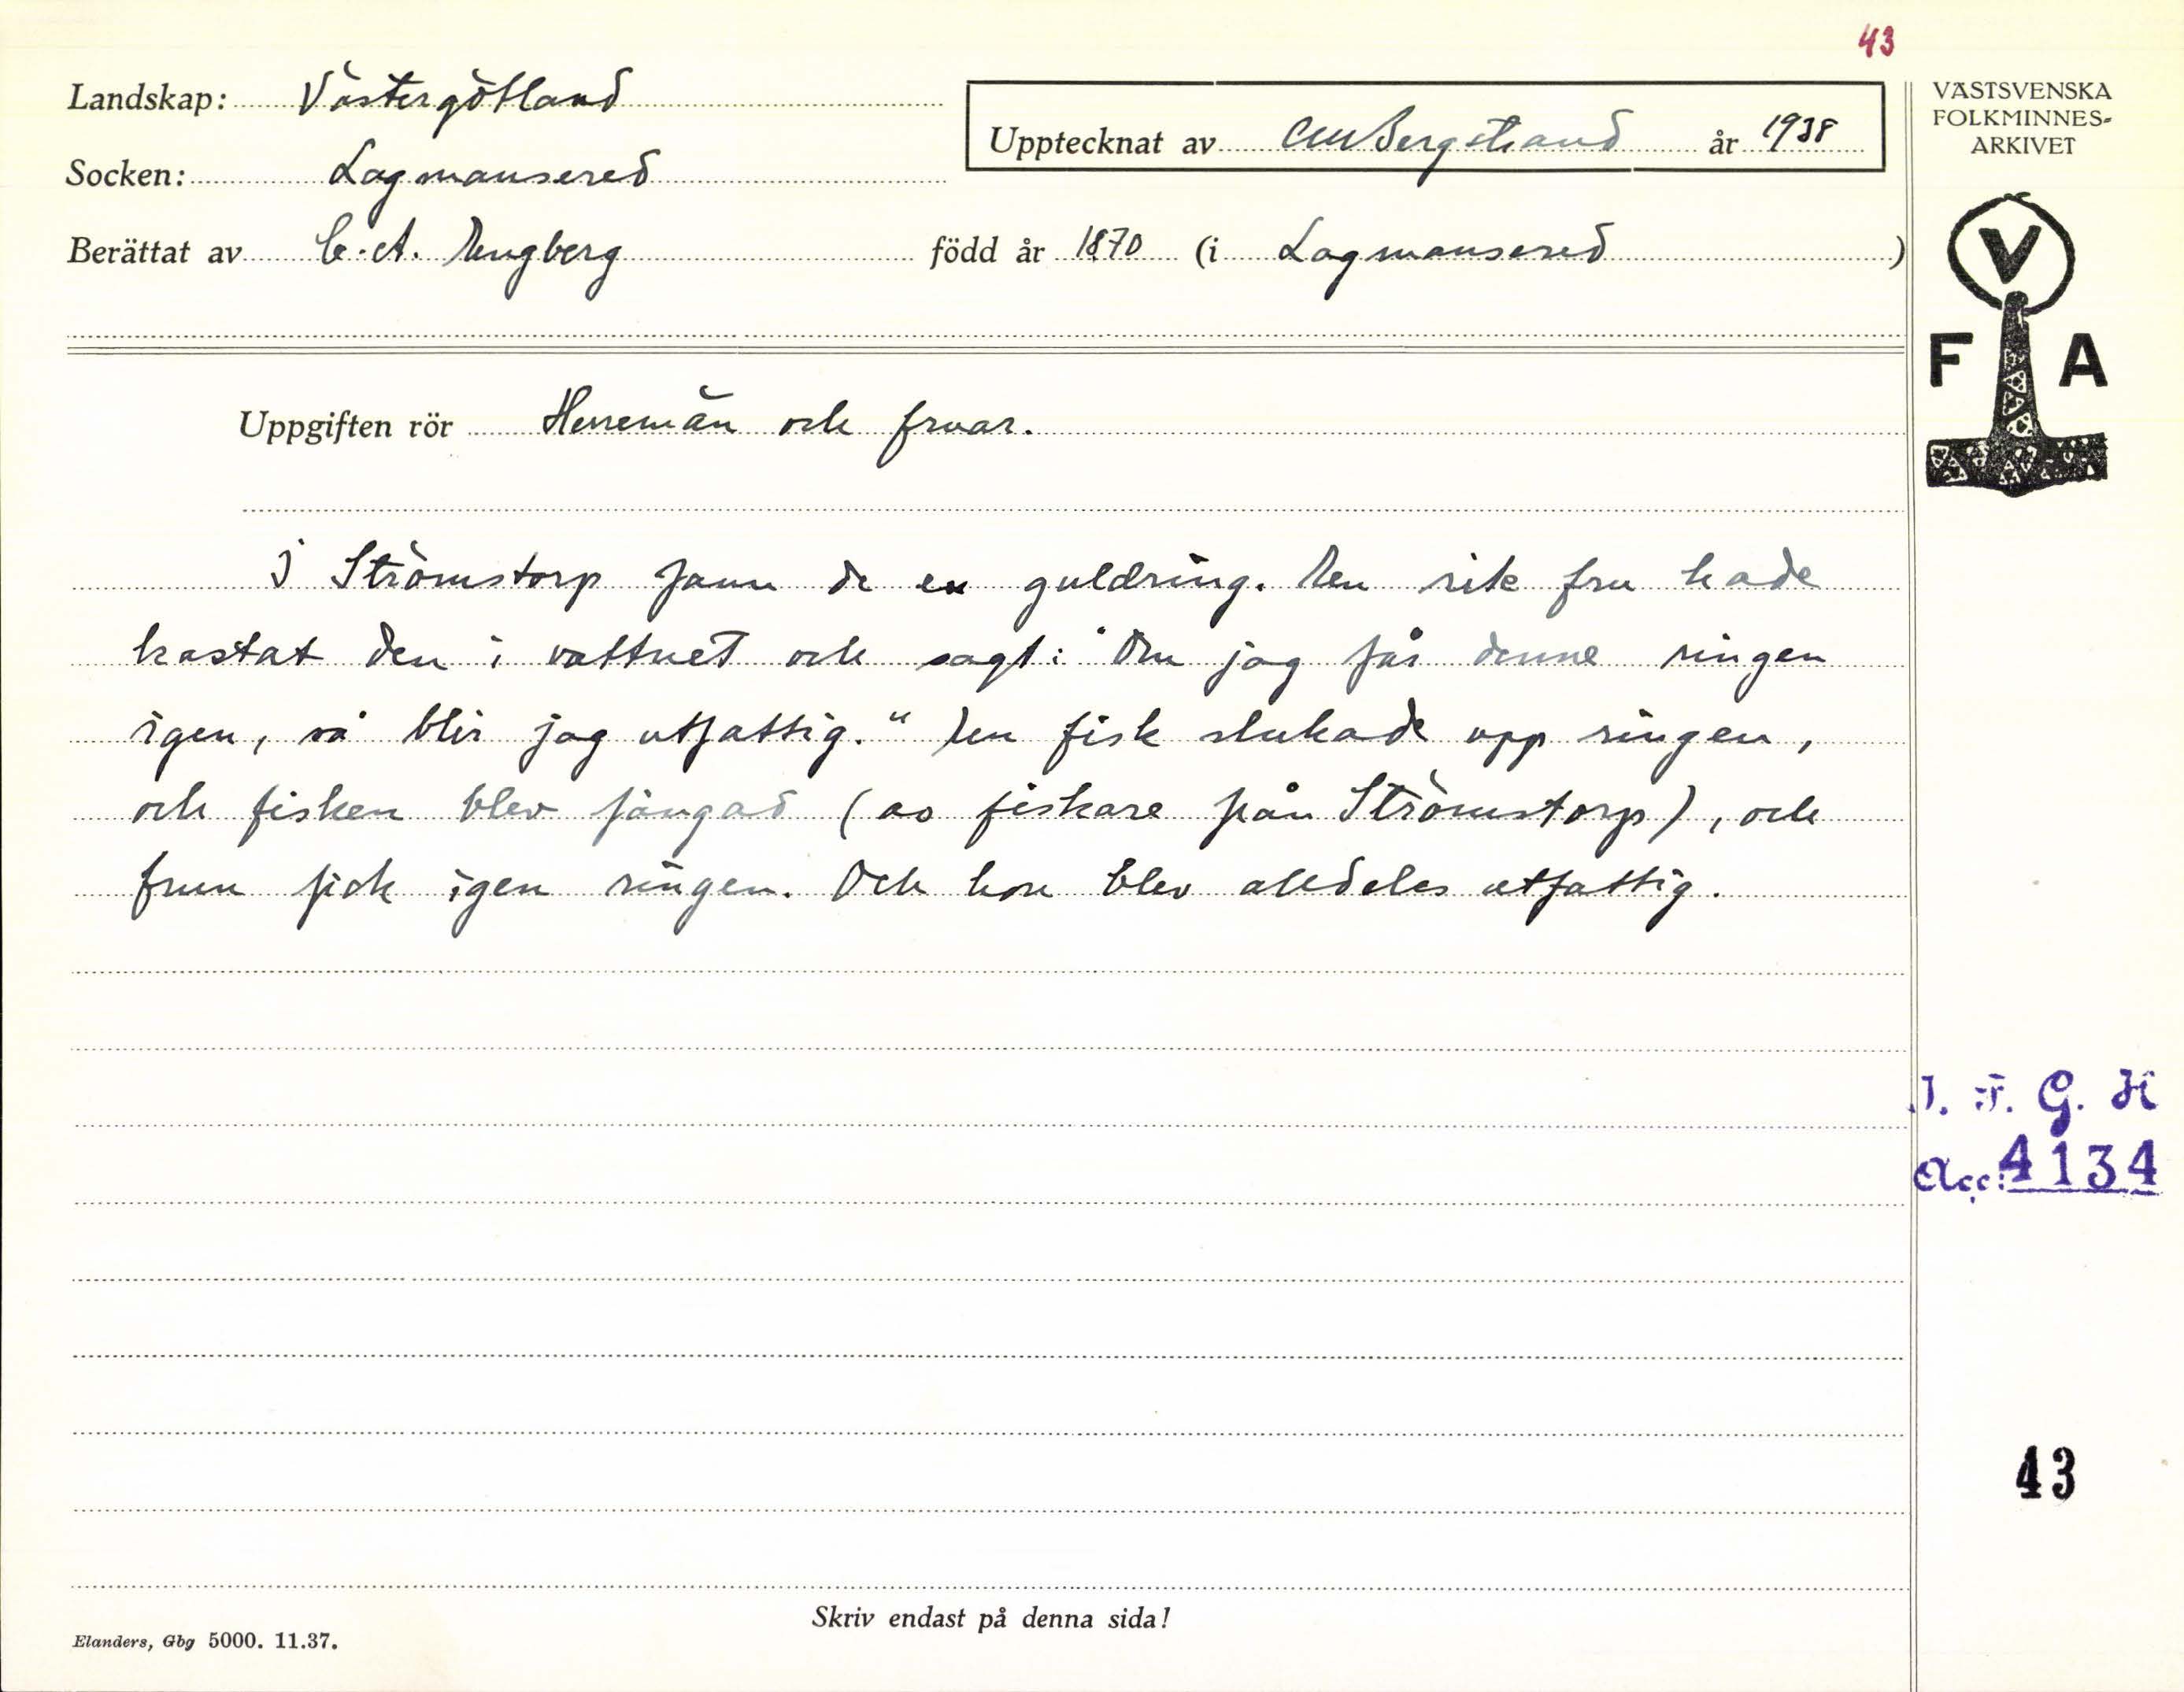 43
Landskap: Västergötland
Upptecknat av CM Bergstrand år 1938
Socken: Lagmansered
Berättat av C. A. Engberg född år 1870 (i Lagmansered)
VÄSTSVENSKA
FOLKMINNES-
ARKIVET
V
F A
Uppgiften rör Herremän och fruar.
I Strömstorp fann de en guldring. En rik fru hade
kastat den i vattnet och sagt: "Om jag får denne ringen
igen, så blir jag utfattig." En fisk slukade upp ringen,
och fisken blev fångad (av fiskare från Strömstorp), och
frun fick igen ringen. Och hon blev alldeles utfattig.
I. F. G. H
Acc: 4134
43
Skriv endast på denna sida!
Elanders, Gbg 5000. 11.37.